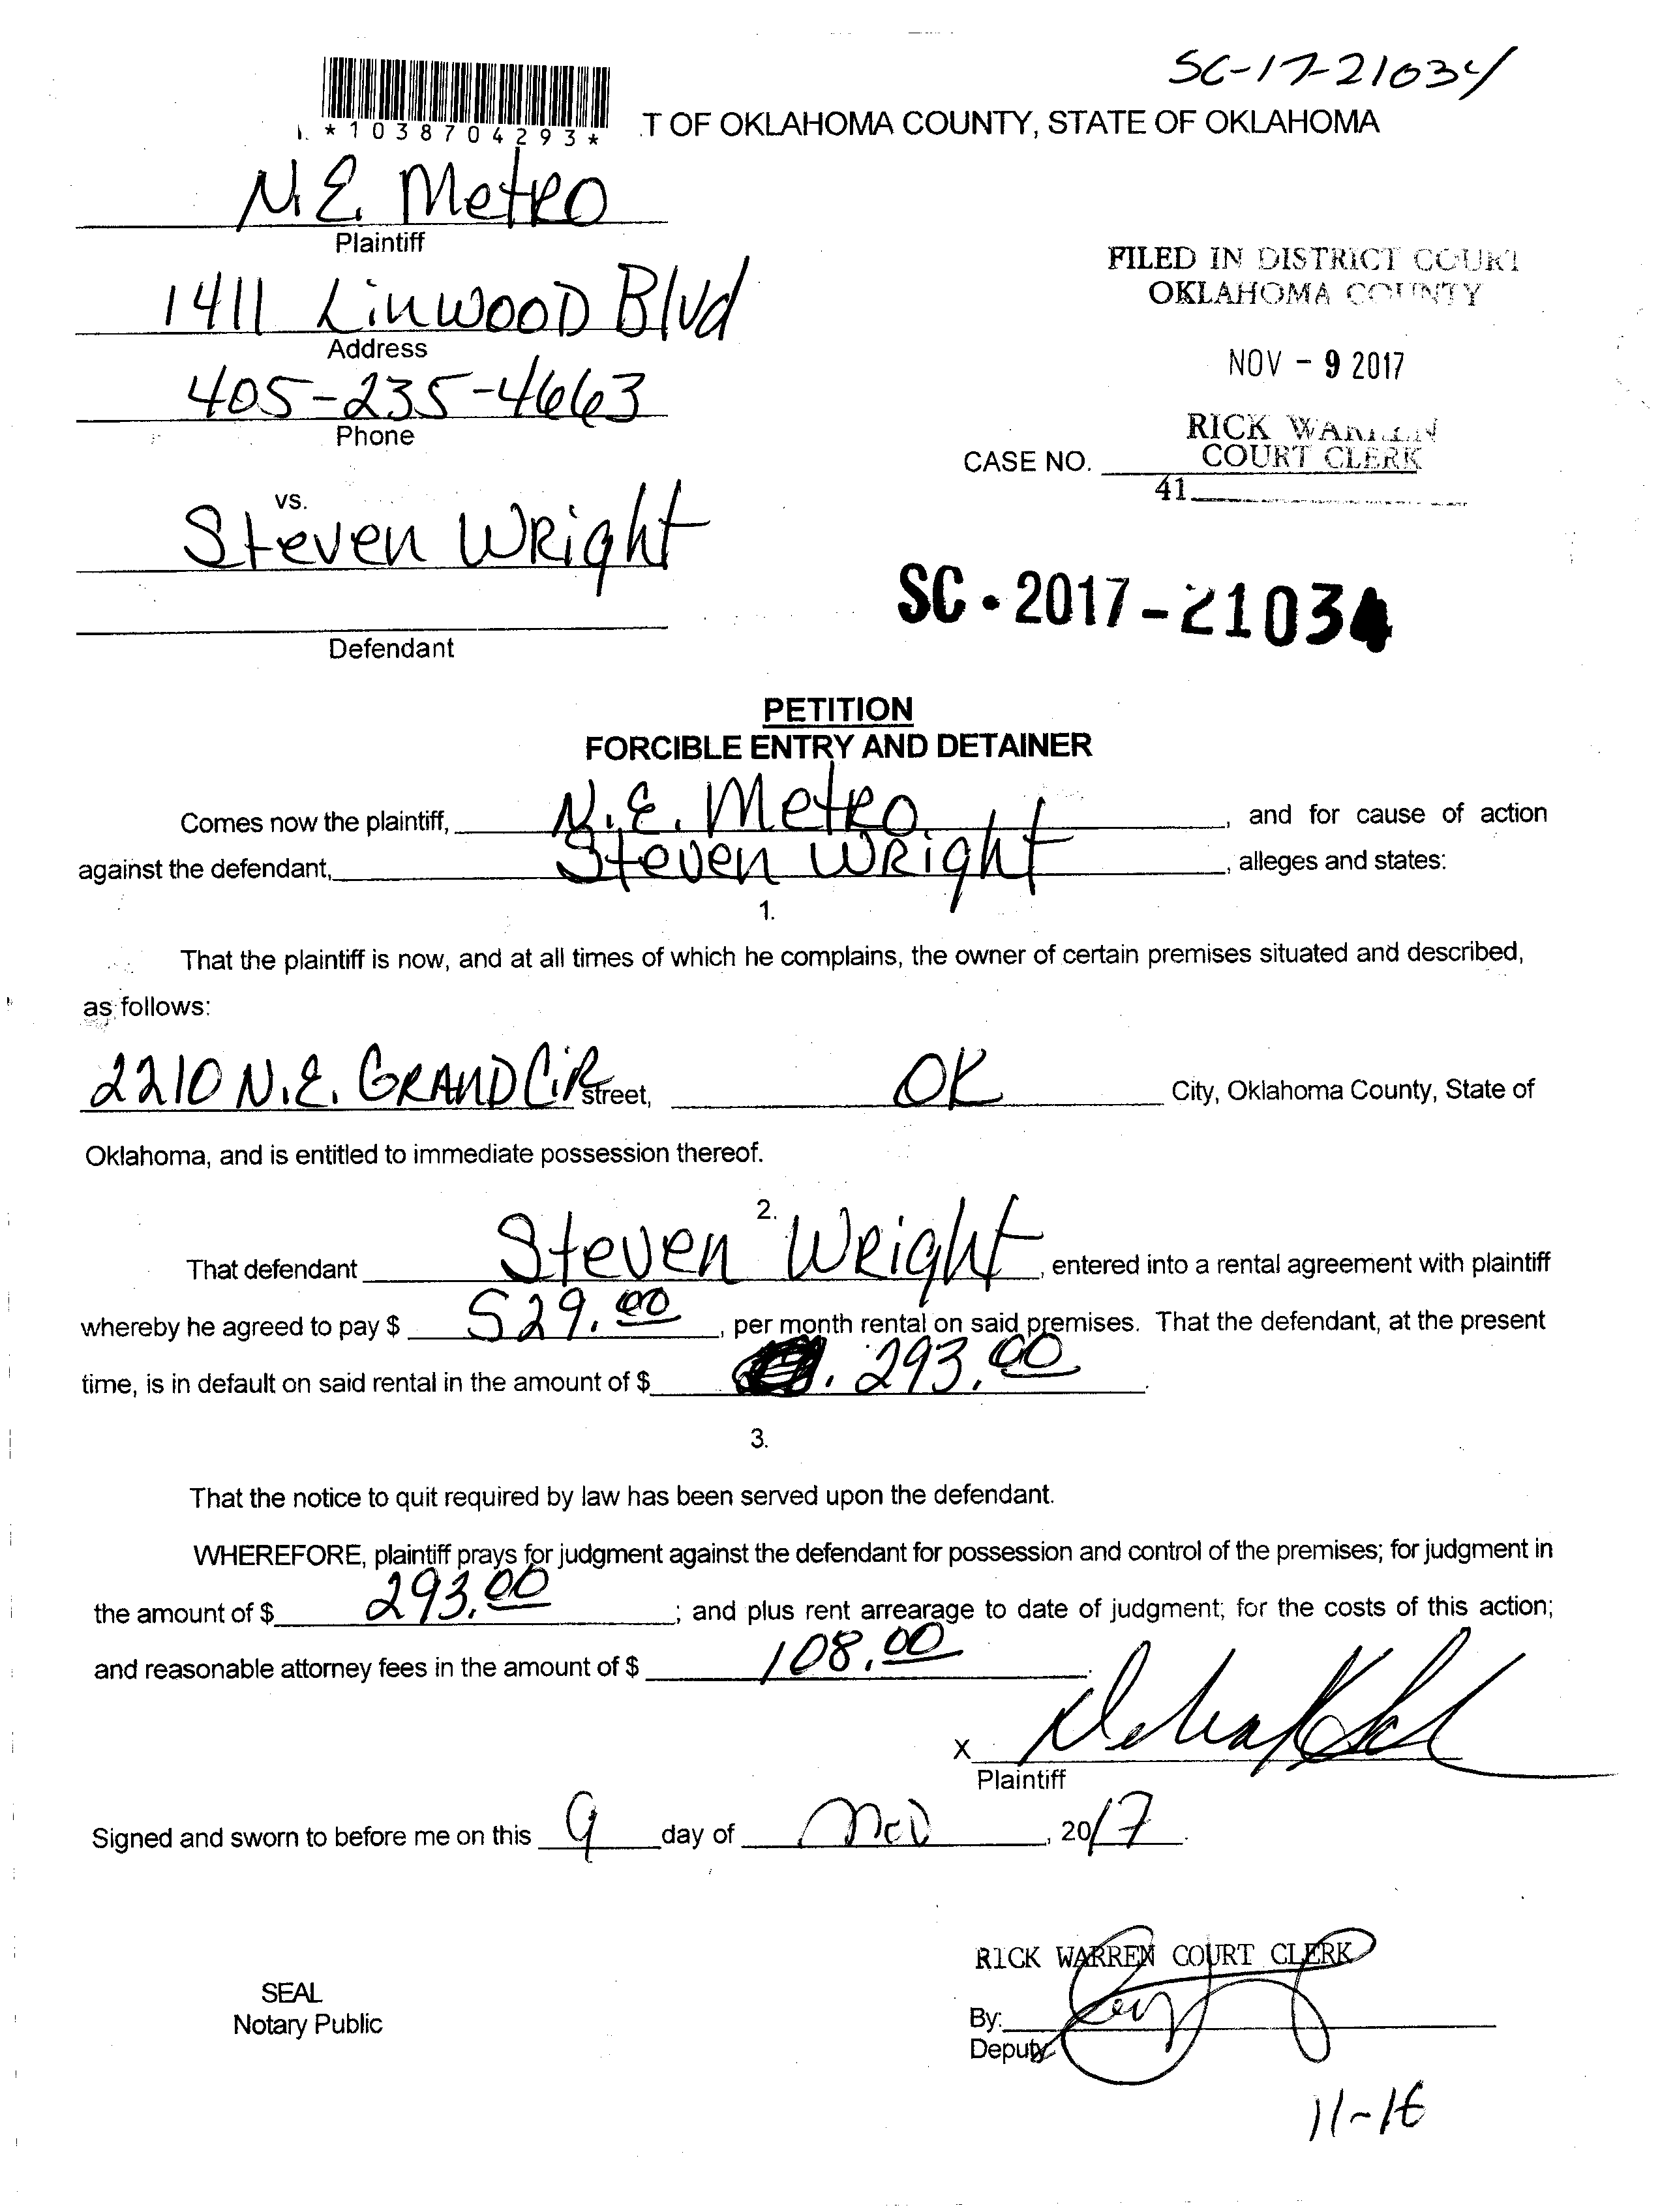 SC-17-21034
*1038704293*
T OF OKLAHOMA COUNTY, STATE OF OKLAHOMA
N.E. Metro
Plaintiff
FILED IN DISTRICT COURT
OKLAHOMA COUNTY
1411 Linwood Blvd
Address
NOV - 9 2017
405-235-4663
Phone
RICK WARREN
COURT CLERK
CASE NO.
41
vs.
Steven Wright
SC-2017-21034
Defendant
PETITION
FORCIBLE ENTRY AND DETAINER
Comes now the plaintiff, N.E. Metro, and for cause of action
against the defendant, Steven Wright, alleges and states:
1.
That the plaintiff is now, and at all times of which he complains, the owner of certain premises situated and described,
as follows:
2210 N.E. GRAND CiR Street, OK City, Oklahoma County, State of
Oklahoma, and is entitled to immediate possession thereof.
2.
That defendant Steven Wright, entered into a rental agreement with plaintiff
whereby he agreed to pay $ 529.00, per month rental on said premises. That the defendant, at the present
time, is in default on said rental in the amount of $ 293.00.
3.
That the notice to quit required by law has been served upon the defendant.
WHEREFORE, plaintiff prays for judgment against the defendant for possession and control of the premises; for judgment in
the amount of $ 293.00; and plus rent arrearage to date of judgment; for the costs of this action;
and reasonable attorney fees in the amount of $ 108.00.
X
Plaintiff
Signed and sworn to before me on this 9 day of Nov, 2017.
RICK WARREN COURT CLERK
SEAL
Notary Public
By:
Deputy
11-16